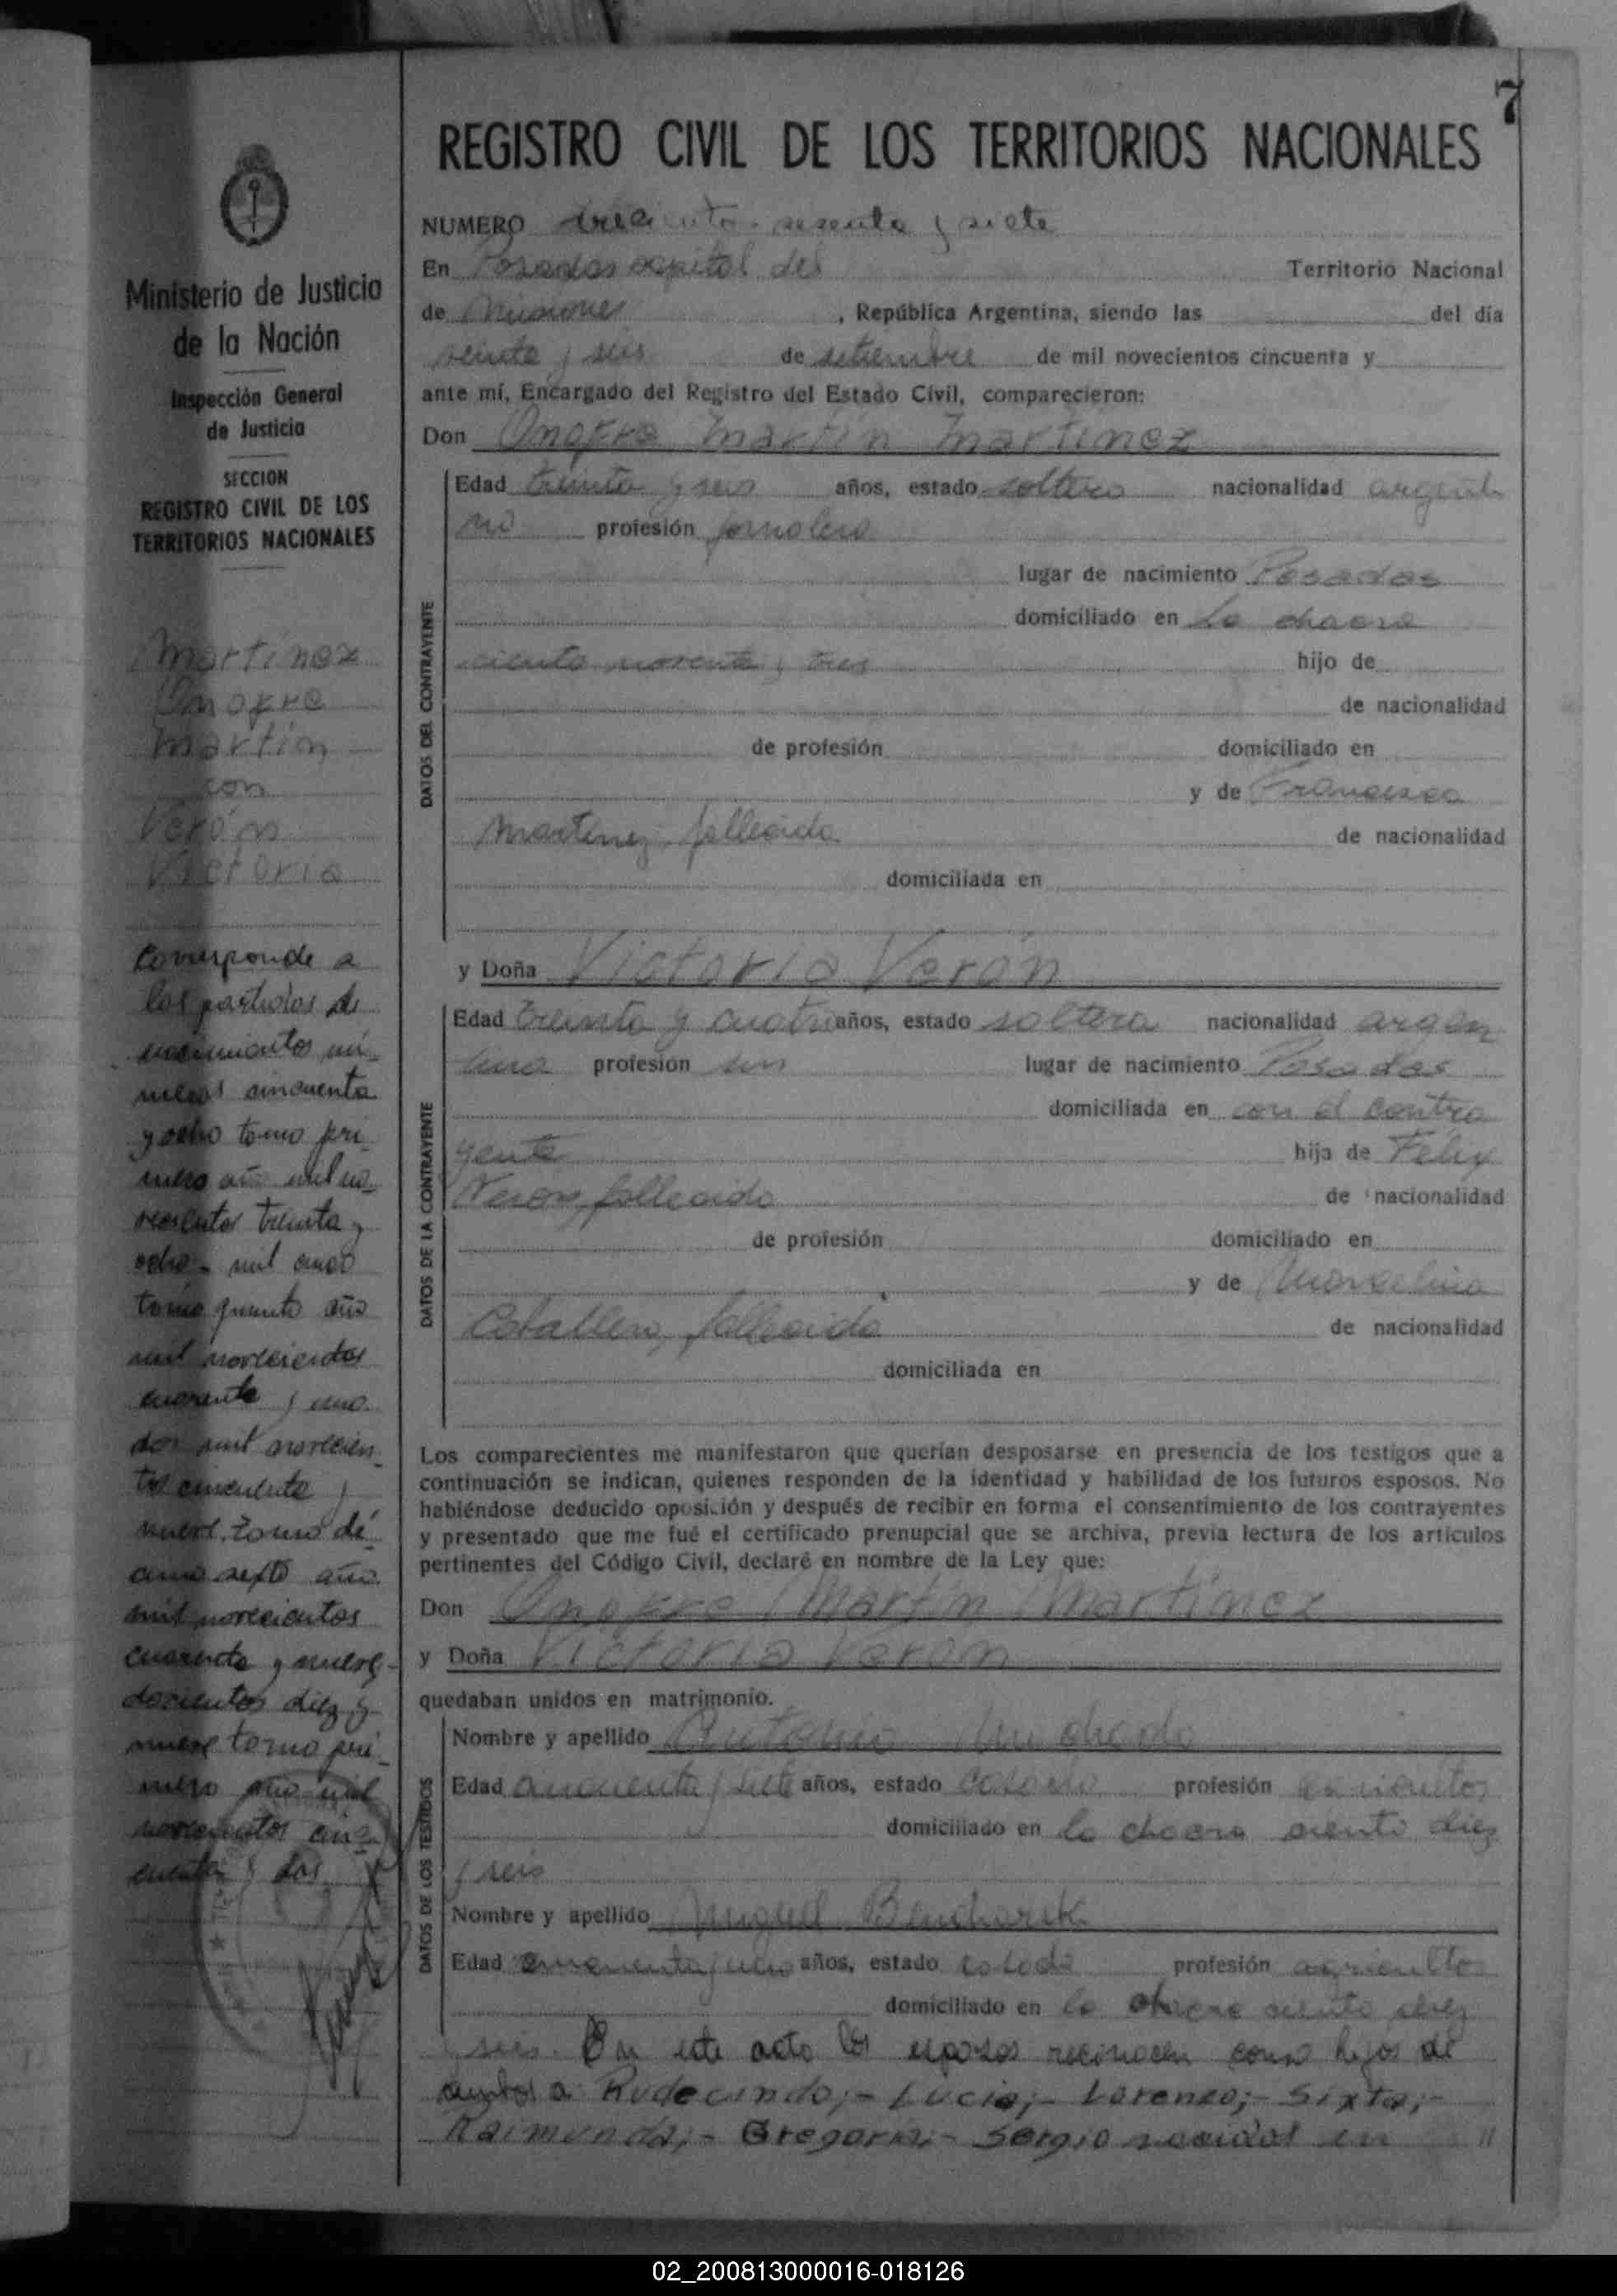 7
REGISTRO CIVIL DE LOS TERRITORIOS NACIONALES
Ministerio de Justicia
de la Nación
Inspección General
de Justicia
SECCION
REGISTRO CIVIL DE LOS
TERRITORIOS NACIONALES
Martínez
Onofre
Martín
con
Verón
Victoria
Corresponde a
las partidas de
nacimientos nú-
meros cincuenta
y ocho tomo pri-
mero año mil no-
vecientos treinta y
ocho - mil cinco
tomo quinto año
mil novecientos
cuarenta y uno.
dos mil novecien-
tos cincuenta y
nueve tomo dé-
cimo sexto año
mil novecientos
cuarenta y nueve-
doscientos diez y
nueve tomo pri-
mero año mil
novecientos cin-
cuenta y dos
NUMERO trecientos sesenta y siete
En Posadas capital del Territorio Nacional
de Misiones , República Argentina, siendo las del día
veinte y seis de setiembre de mil novecientos cincuenta y
ante mí, Encargado del Registro del Estado Civil, comparecieron:
Don Onofre Martín Martínez
DATOS DEL CONTRAYENTE
Edad treinta y seis años, estado soltero nacionalidad argenti
no profesión jornalero
lugar de nacimiento Posadas
domiciliado en la chacra
ciento noventa y tres hijo de
de nacionalidad
de profesión domiciliado en
y de Francisca
Martínez, fallecida de nacionalidad
domiciliada en
y Doña Victoria Verón
DATOS DE LA CONTRAYENTE
Edad treinta y cuatro años, estado soltera nacionalidad argen
tina profesión sin lugar de nacimiento Posadas
domiciliada en con el contra
yente hija de Felix
Veron, fallecido de nacionalidad
de profesión domiciliado en
y de Marcelina
Caballero, fallecida de nacionalidad
domiciliada en
Los comparecientes me manifestaron que querían desposarse en presencia de los testigos que a
continuación se indican, quienes responden de la identidad y habilidad de los futuros esposos. No
habiéndose deducido oposición y después de recibir en forma el consentimiento de los contrayentes
y presentado que me fué el certificado prenupcial que se archiva, previa lectura de los artículos
pertinentes del Código Civil, declaré en nombre de la Ley que:
Don Onofre Martín Martínez
y Doña Victoria Verón
quedaban unidos en matrimonio.
DATOS DE LOS TESTIGOS
Nombre y apellido Antonio
Edad cincuenta y siete años, estado casado profesión agricultor
domiciliado en la chacra ciento diez
y seis
Nombre y apellido Miguel
Edad años, estado casado profesión agricultor
domiciliado en la chacra ciento diez
seis. En este acto los esposos reconocen como hijos de
ambos a: Rudecindo;- Lucia;- Lorenzo;- Sixta;-
Raimunda;- Gregoria;- Sergio nacidos en //
02_200813000016-018126